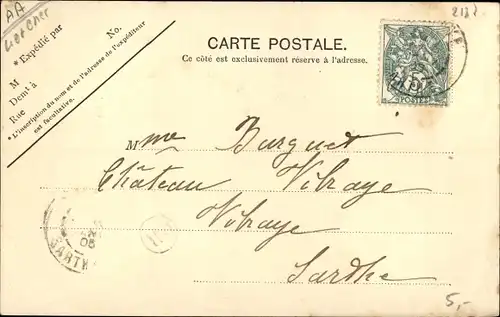 AA
Loir et Cher
2122
* Expédié par
No.
M
Demt à
Rue
* L'inscription du nom et de l'adresse de l'expéditeur
est facultative.
CARTE POSTALE.
Ce côté est exclusivement réservé à l'adresse.
5
POSTES
Mme Burguet
Château Vibraye
Vibraye
Sarthe
05
SARTH
5,-